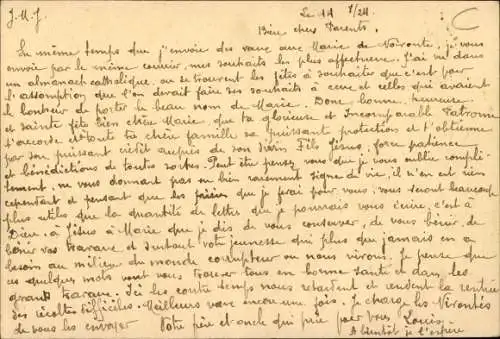 J.M.J. Le 14 8/24.
Bien chers Parents,
En même temps que j'envoie des vœux aux Marie de Noironte, je vous
envoie par le même courrier, mes souhaits les plus affectueux. J'ai vu dans
un almanach catholique, où se trouvent les fêtes à souhaiter que c'est pour
l'assomption que l'on devrait faire ses souhaits à ceux et celles qui avaient
l'honneur de porter le beau nom de Marie. Donc bonne, heureuse
et sainte fête bien chère Marie, que ta glorieuse et Incomparable Patronne
t'accorde et à toute ta chère famille sa puissant protection et t'obtienne
par son puissant crédit auprès de son Divin Fils Jésus, force patience
et bénédictions de toutes sortes. Peut être pensez vous que je vous oublie complè-
tement, ne vous donnant pas ou bien rarement signe de vie, il n'en est rien
cependant et pensant que les prière que je ferai pour vous, vous seront beaucoup
plus utiles que la quantité de lettres que je pourrais vous écrire, c'est à
Dieu, à Jésus à Marie que je dis de vous conserver, de vous bénir, de
bénir vos travaux et surtout votre jeunesse qui plus que jamais en a
besoin au milieu du monde corrupteur où nous vivons. Je pense que
ces quelques mots vont vous trouver tous en bonne santé et dans les
grands travaux. Ici les contre temps nous retardent et rendent la rentrée
des récoltes difficiles. Meilleurs vœux encore une fois. Je charge les Noirontes
de vous les envoyer Votre père et oncle qui prie pour vous Louis.
A bientôt je l'espère